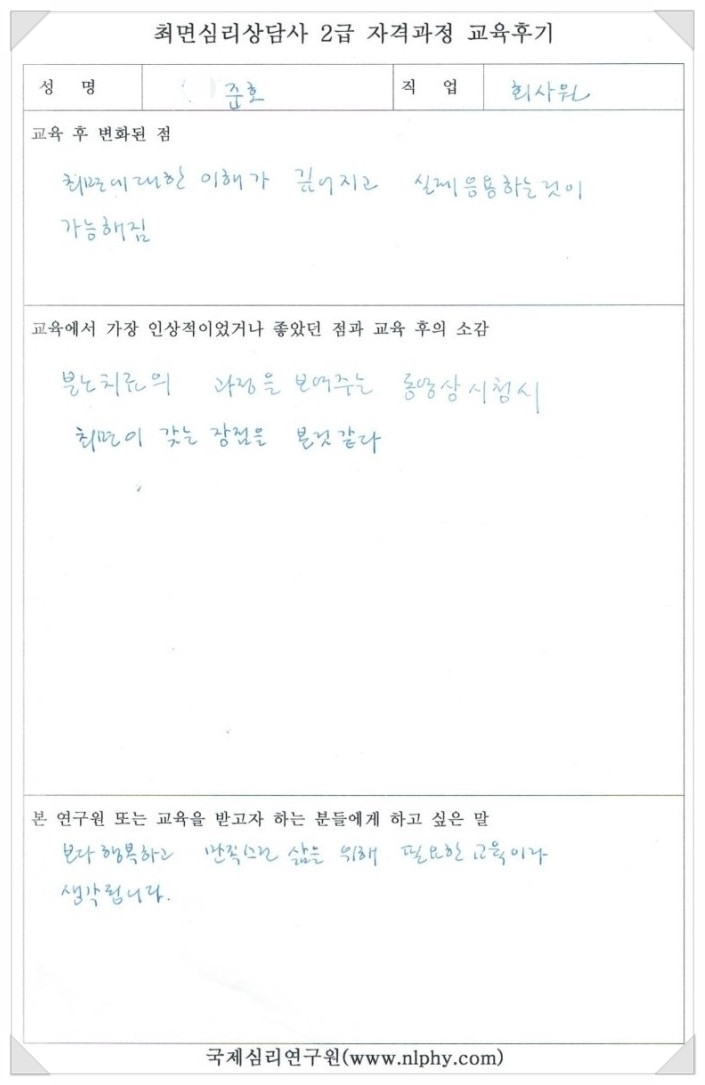 최면심리상담사 2급 자격과정 교육후기
성 명 준호 직 업 회사원
교육 후 변화된 점
최면에 대한 이해가 깊어지고 실제 응용하는것이
가능해짐
교육에서 가장 인상적이었거나 좋았던 점과 교육 후의 소감
분노치료의 과정을 보여주는 동영상 시청시
최면이 갖는 장점을 본것 같다
본 연구원 또는 교육을 받고자 하는 분들에게 하고 싶은 말
보다 행복하고 만족스런 삶을 위해 필요한 교육이라
생각됩니다.
국제심리연구원(www.nlphy.com)